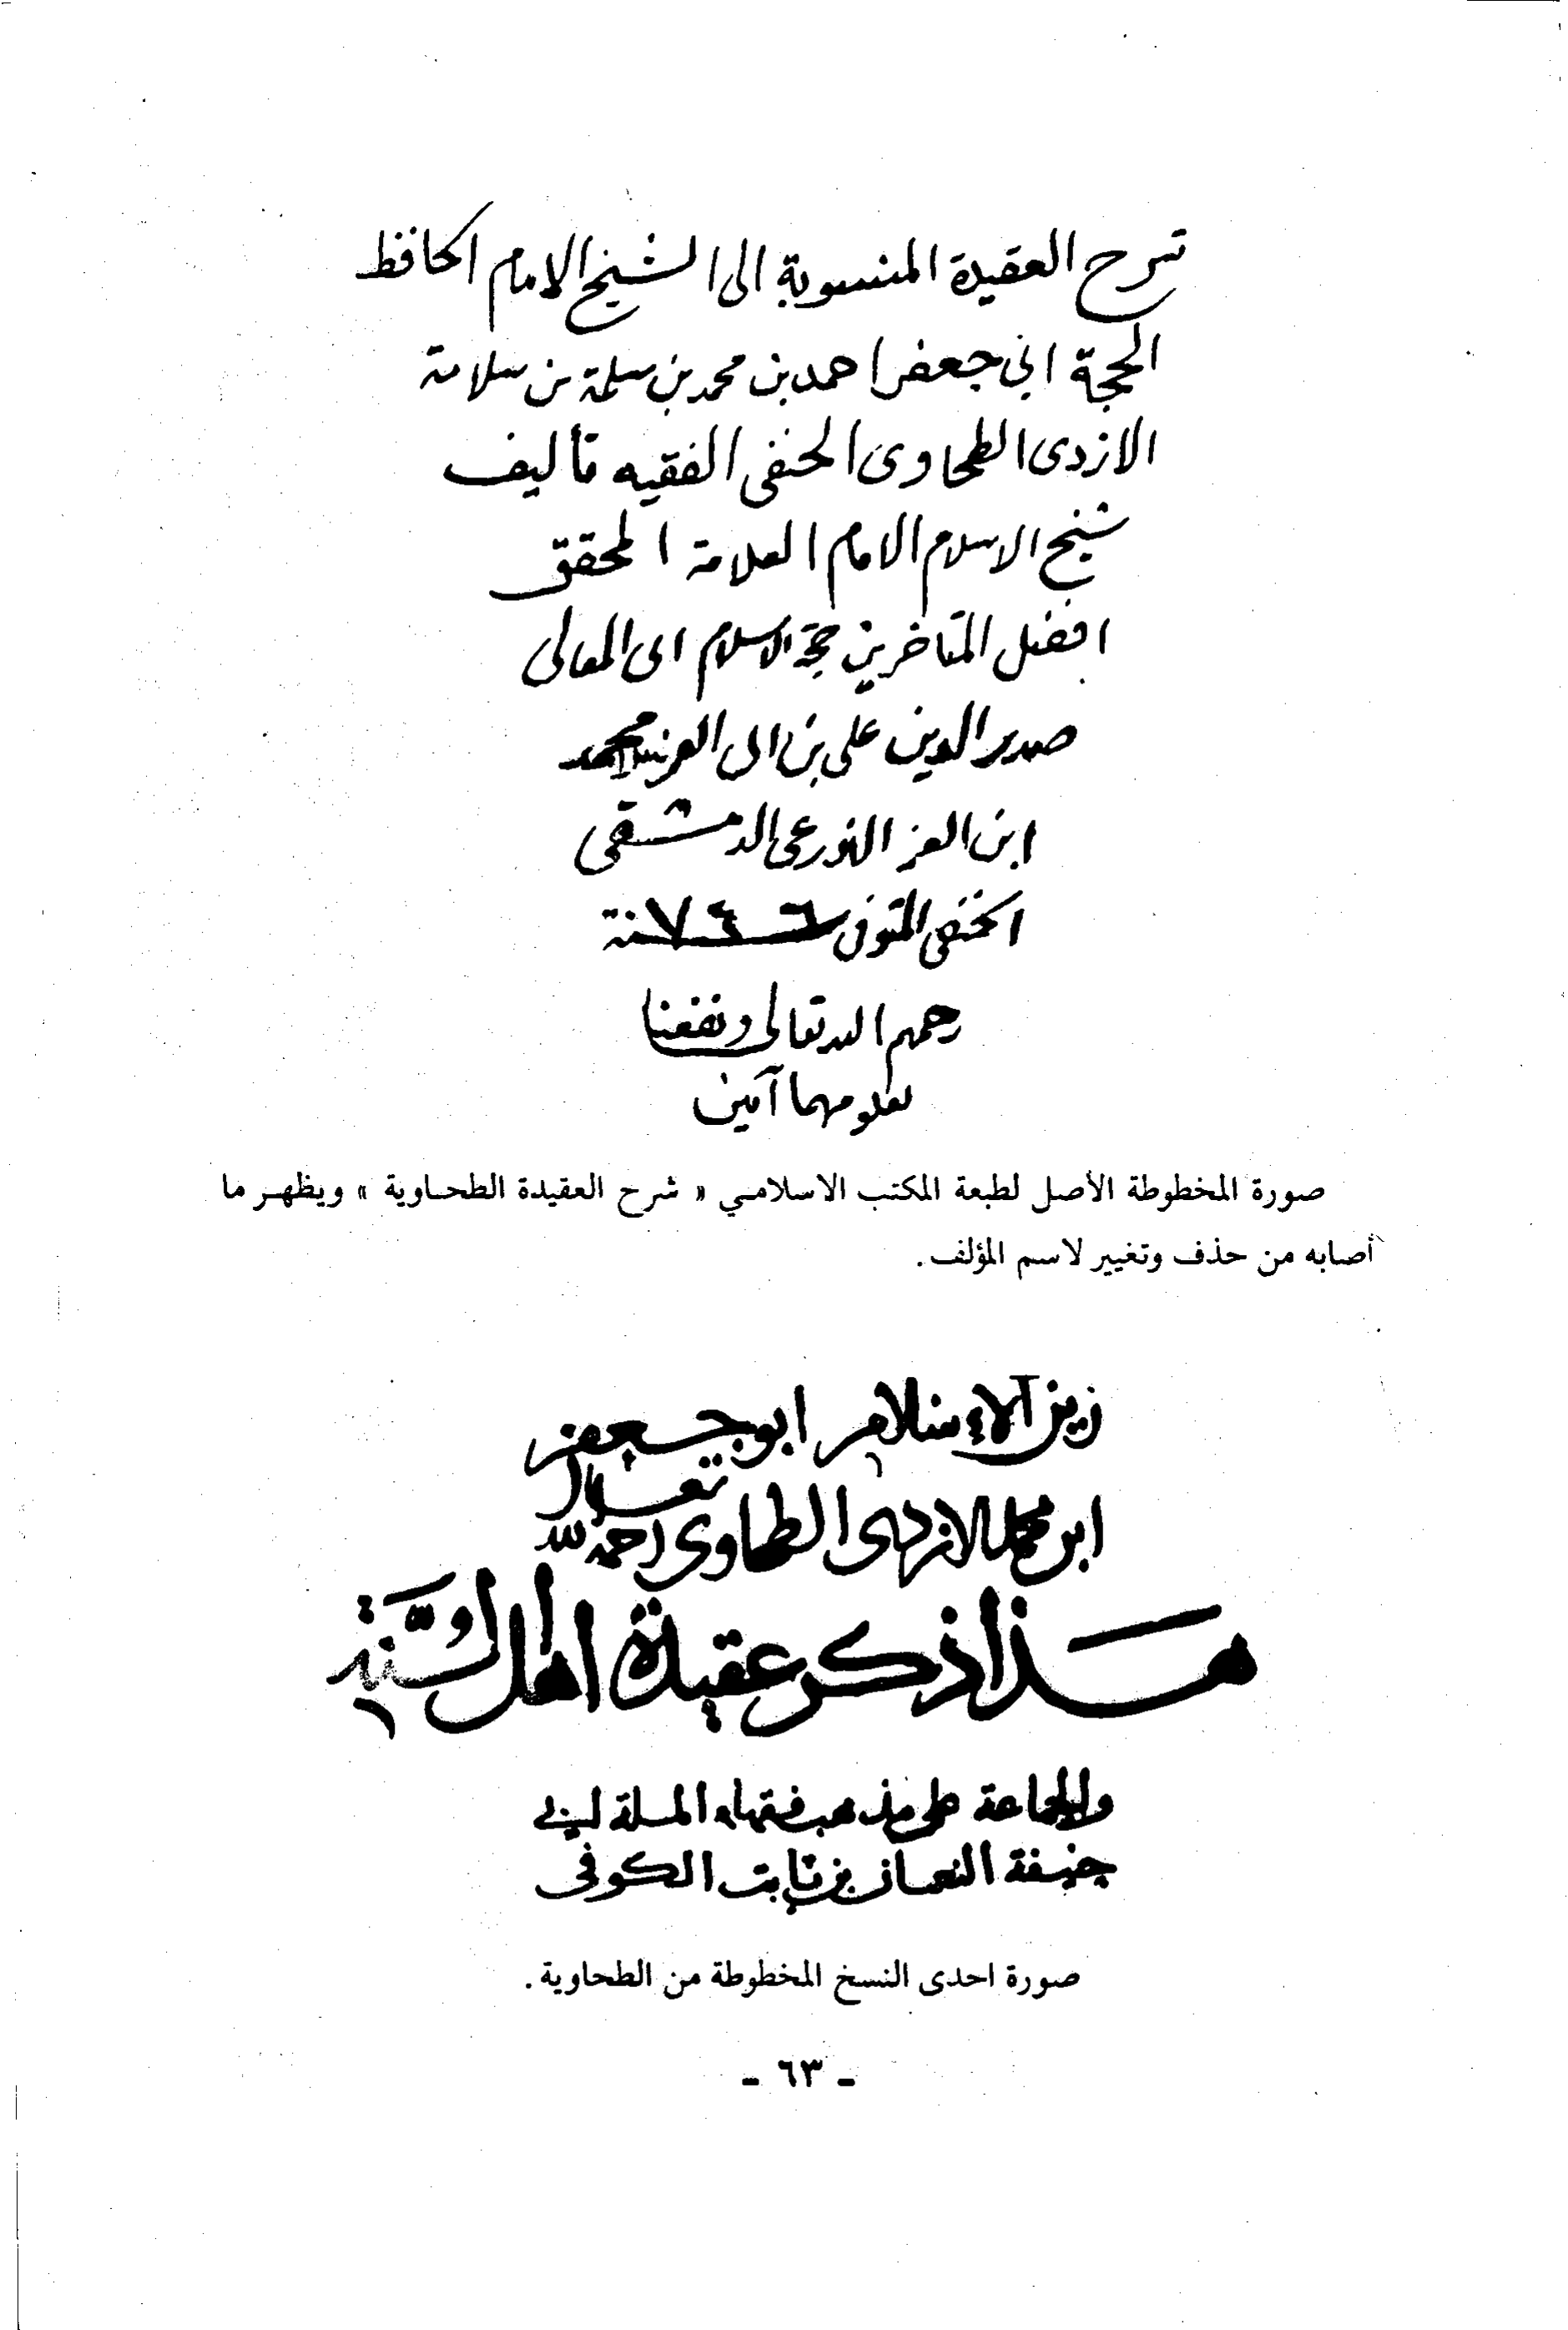 شرح العقيدة المنسوبة الى الشيخ الامام الحافظ
الحجة ابي جعفر احمد بن محمد بن سلمة بن سلامة
الازدى الطحاوى الحنفى الفقيه تأليف
شيخ الاسلام الامام العلامة المحقق
افضل المتاخرين حجة الاسلام ابى المعالى
صدر الدين على بن ابى العز محمد
ابن العز الدمشقى
الحنفى المتوفى سنة ٧٤٦
رحمهم الله تعالى ونفعنا
بعلومهما آمين
صورة المخطوطة الأصل لطبعة المكتب الاسلامي « شرح العقيدة الطحاوية » ويظهر ما
أصابه من حذف وتغيير لاسم المؤلف .
زين الاسلام ابو جعفر
ابن محمد الازدى الطحاوى رحمه الله تعالى
هذا ذكر عقيدة اهل السنة
والجماعة على مذهب فقهاء الملة ابي
حنيفة النعمان بن ثابت الكوفى
صورة احدى النسخ المخطوطة من الطحاوية .
- ٦٣ -